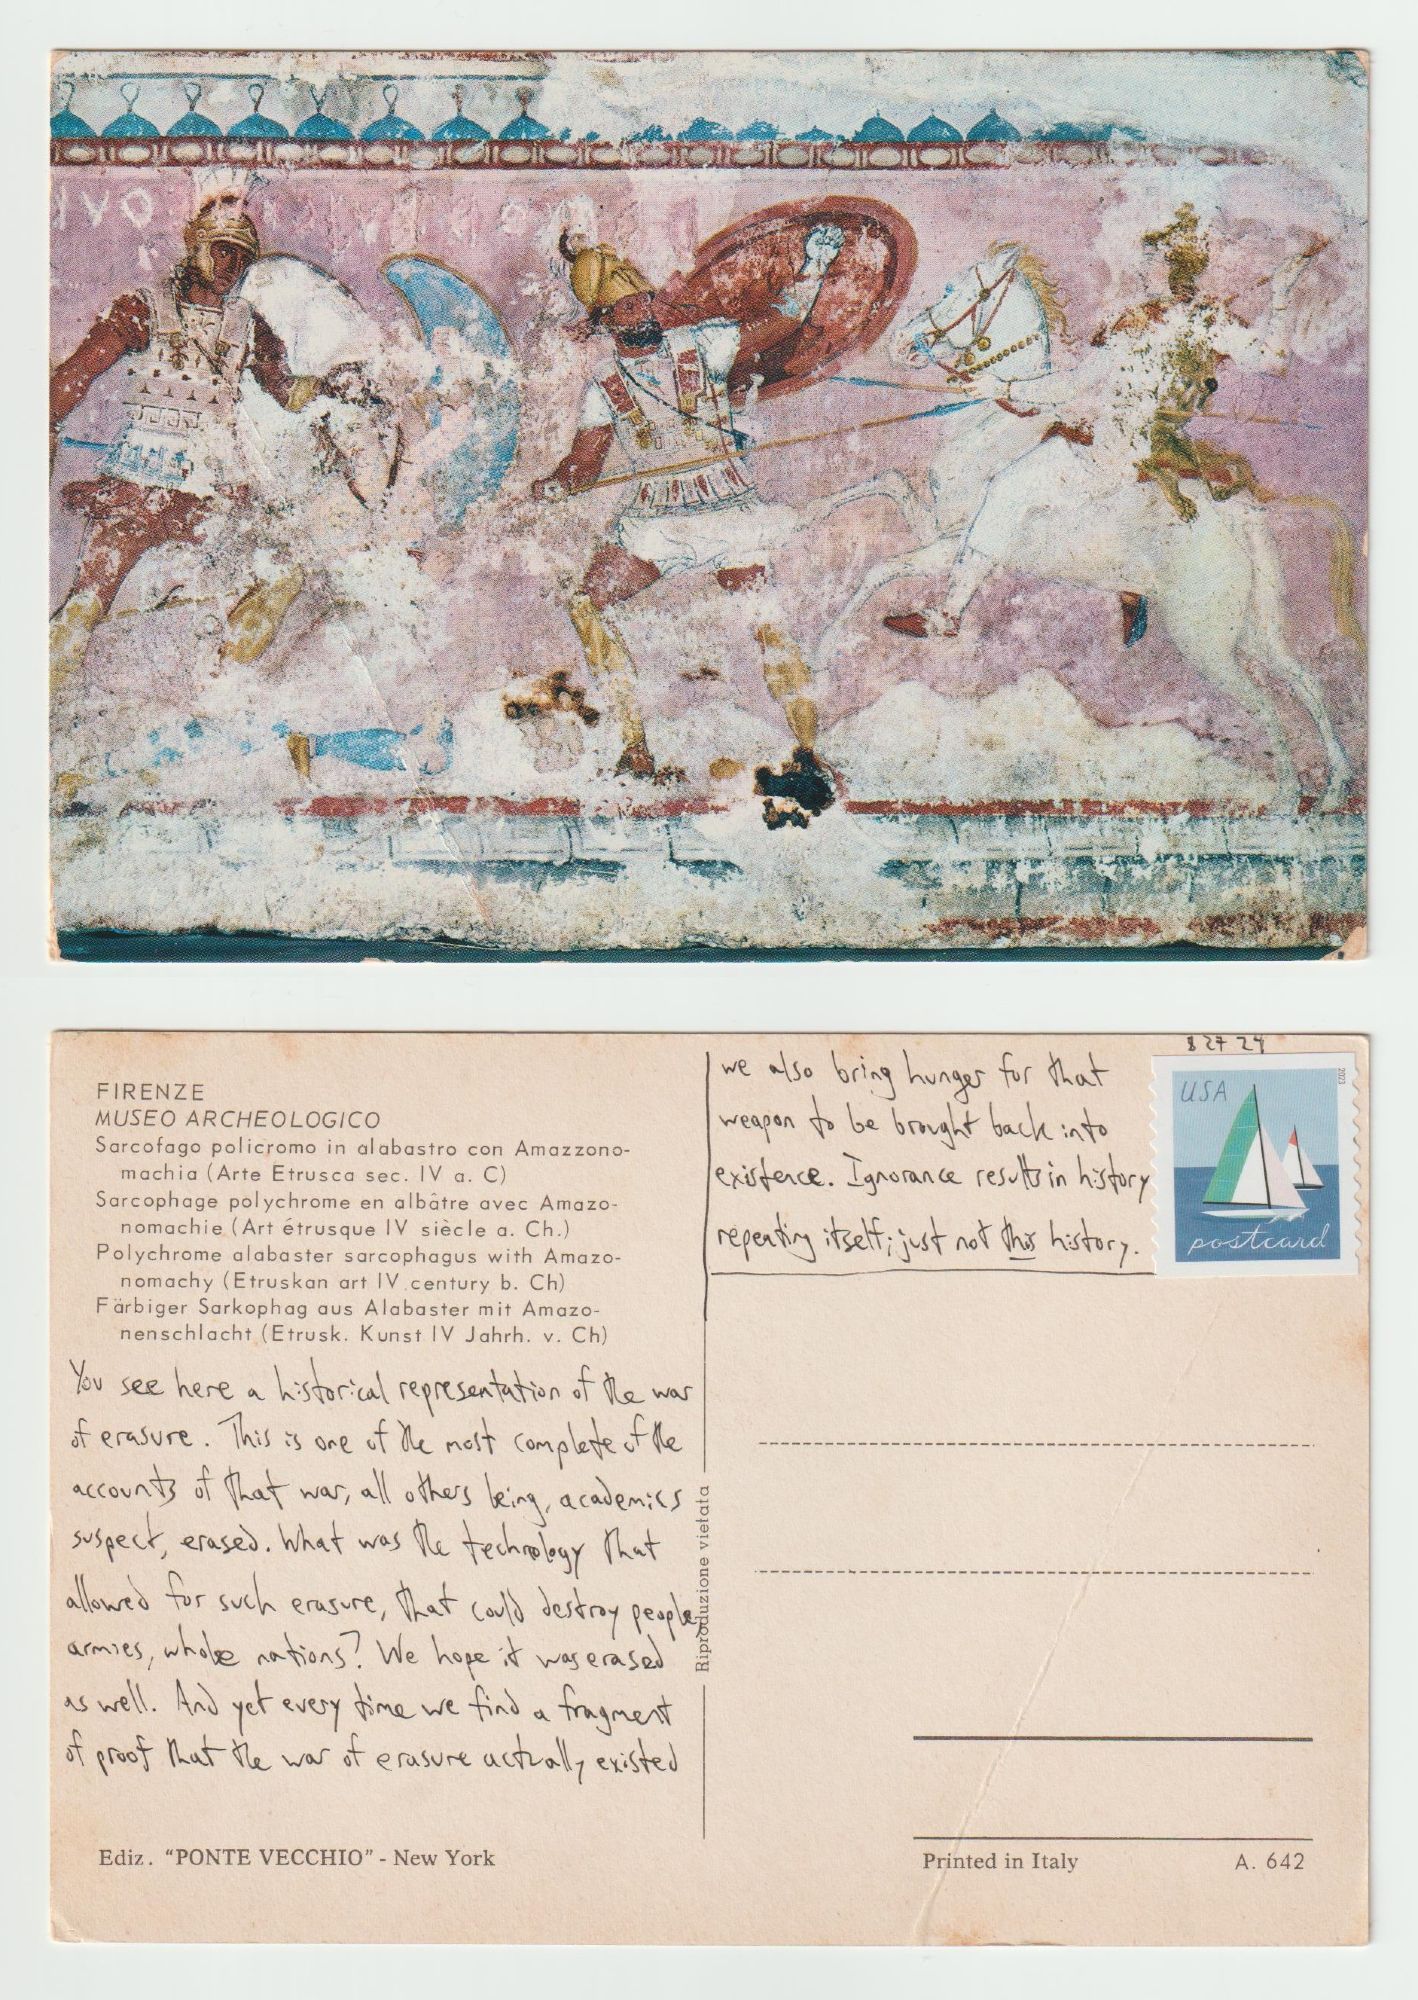 FIRENZE
MUSEO ARCHEOLOGICO
Sarcofago policromo in alabastro con Amazzono-
machia (Arte Etrusca sec. IV a. C)
Sarcophage polychrome en albâtre avec Amazo-
nomachie (Art étrusque IV siècle a. Ch.)
Polychrome alabaster sarcophagus with Amazo-
nomachy (Etruskan art IV century b. Ch)
Färbiger Sarkophag aus Alabaster mit Amazo-
nenschlacht (Etrusk. Kunst IV Jahrh. v. Ch)
You see here a historical representation of the war
of erasure. This is one of the most complete of the
accounts of that war, all others being, academics
suspect, erased. What was the technology that
allowed for such erasure, that could destroy people,
armies, whole nations? We hope it was erased
as well. And yet every time we find a fragment
of proof that the war of erasure actually existed
Ediz. "PONTE VECCHIO" - New York
Riproduzione vietata
we also bring hunger for that
weapon to be brought back into
existence. Ignorance results in history
repeating itself; just not this history.
8 27 24
USA
2023
postcard
Printed in Italy
A. 642